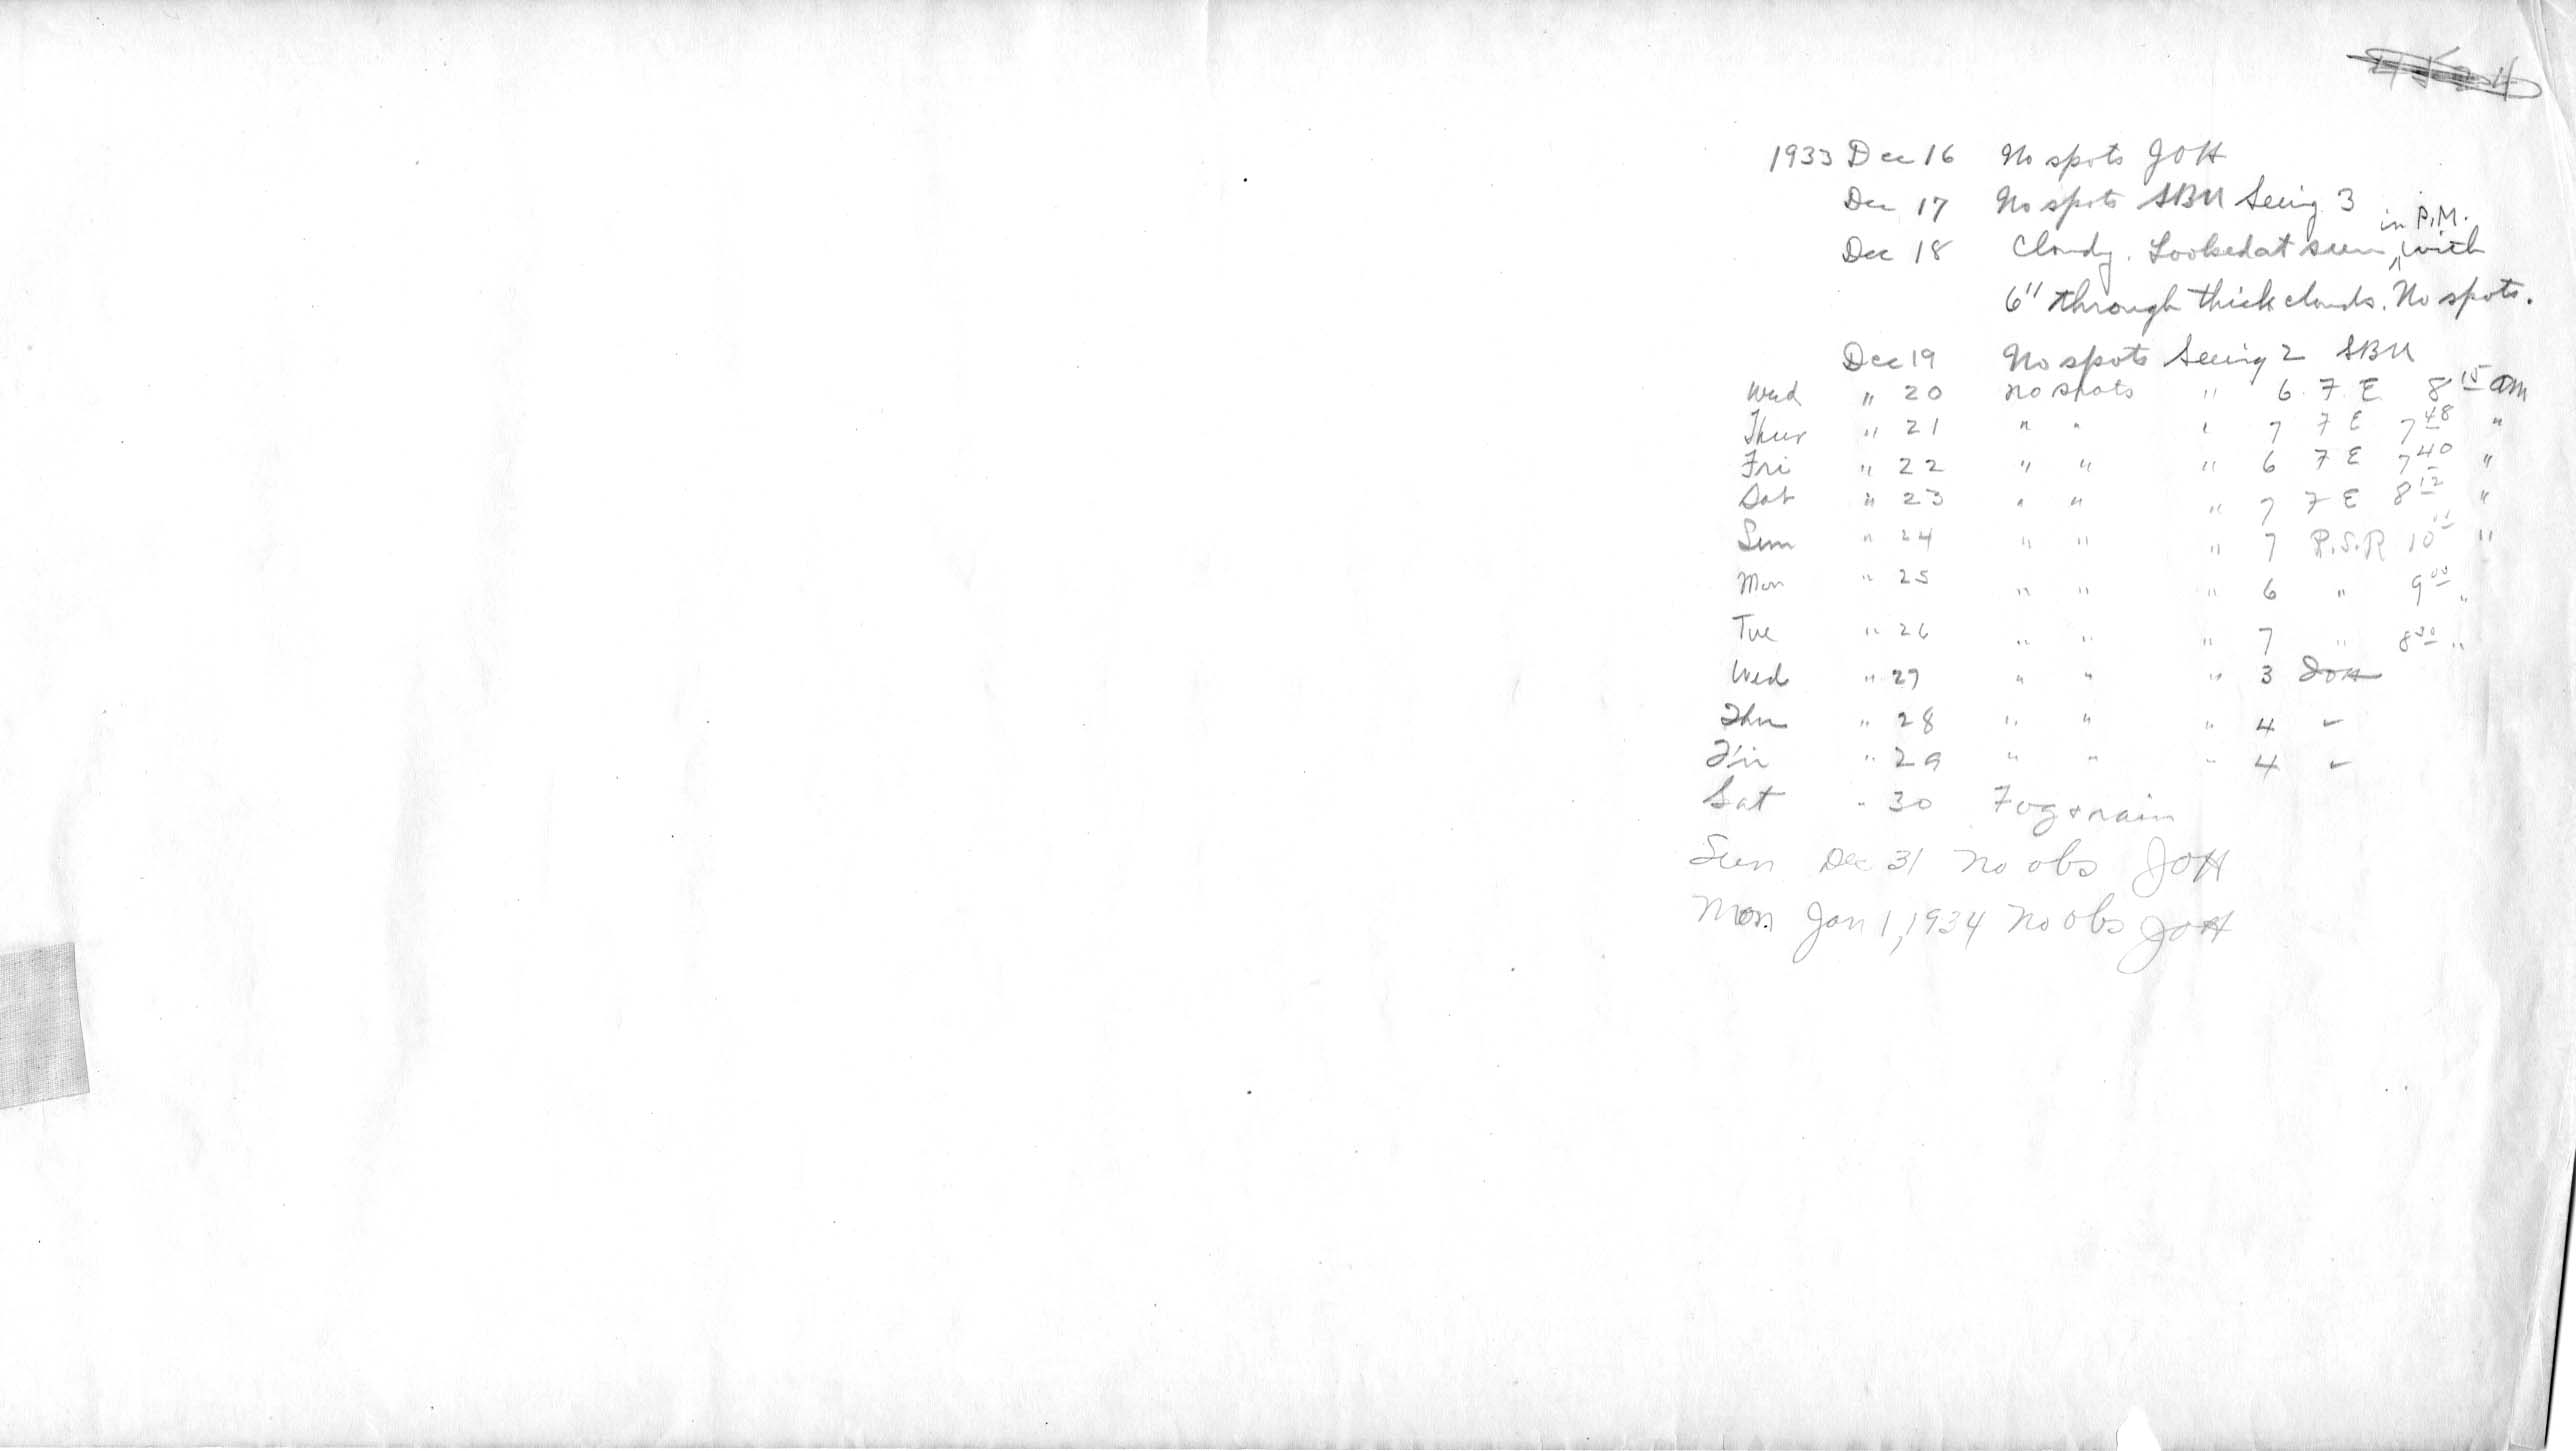 1933 Dec 16 No spots JOH
Dec 17 No spots SBN Seeing 3
in P.M.
Dec 18 Cloudy. Looked at sun ^ with
6" through thick clouds. No spots.
Dec 19 No spots Seeing 2 SBN
Wed " 20 no spots " 6 F. E 8 15 am
Thur " 21 " " " 7 F E 7 48 "
Fri " 22 " " " 6 F E 7 40 "
Sat " 23 " " " 7 F E 8 12 "
Sun " 24 " " " 7 P.S.R 10 "
Mon " 25 " " " 6 " 9 00 "
Tue " 26 " " " 7 " 8 30 "
Wed " 27 " " " 3 JOH
Thu " 28 " " " 4 "
Fri " 29 " " " 4 "
Sat " 30 Fog & rain
Sun Dec 31 no obs JOH
Mon. Jan 1, 1934 no obs JOH